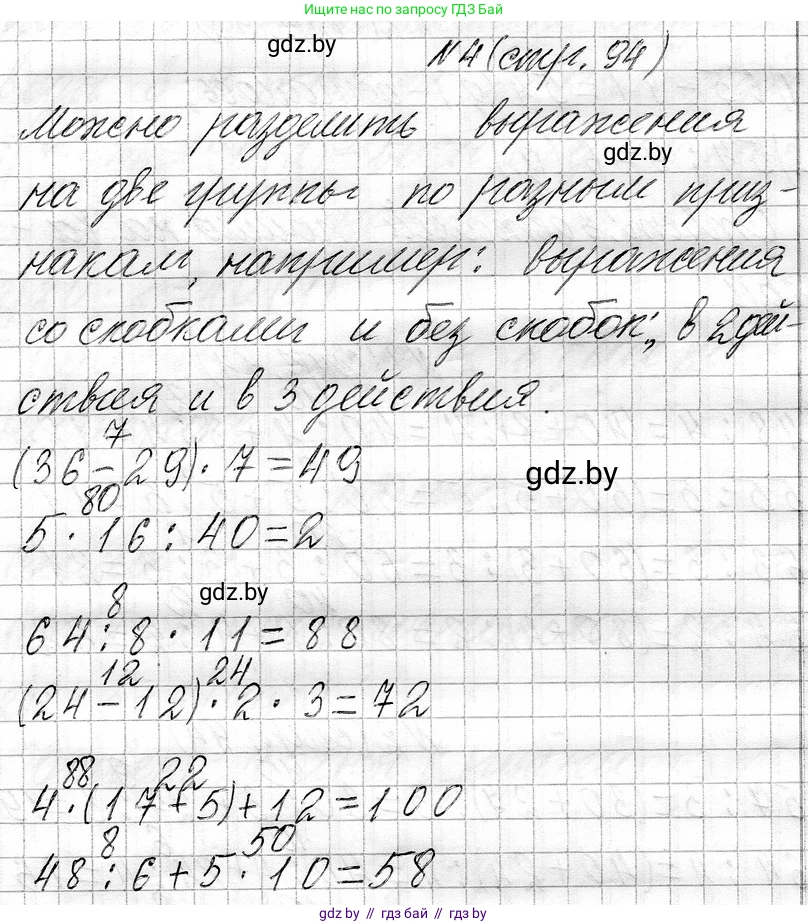 Ищите нас по запросу ГДЗ Бай
gdz.by
№4 (стр. 94)
Можно разделить выражения
gdz.by
на две группы по разным приз-
накам, например: выражения
со скобками и без скобок; в 2 дей-
ствия и в 3 действия.
7
(36-29)·7=49
gdz.by
80
5·16:40=2
8
gdz.by
64:8·11=88
12 24
(24-12)·2·3=72
88 22
4·(17+5)+12=100
8 50
48:6+5·10=58
gdz.by // гдз бай // gdz.by